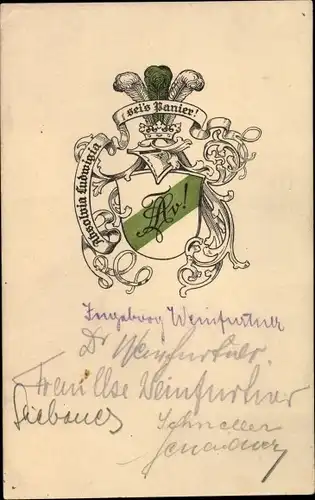 sei's Panier!
Absolvia Ludwigia
Av!
Ingeborg Weinfurtner
Dr Weinfurtner.
Frau Ilse Weinfurtner
Schneller